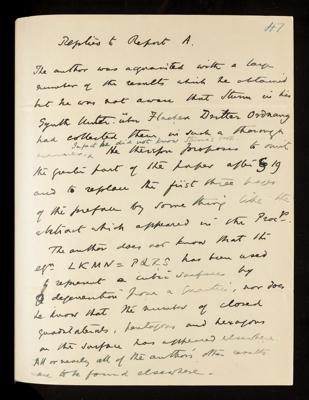 47
Replies to Report A.
The author was acquainted with a large
number of the results which he obtained
but he was not aware that Sturm in his
Synth. Unters. über Flächen Dritter Ordnung
had collected them in such a thorough
In fact he did not know
He therefore proposes to omit
the greater part of the paper after § 19
and to replace the first three pages
of the preface by something like the
abstract which appeared in the Procs.
The author does not know that the
eqn. LKMN = PQRS has been used
to represent a cubic surface by
degeneration from a quartic, nor does
he know that the number of closed
quadrilaterals, pentagons and hexagons
on the surface has appeared elsewhere.
All or nearly all of the author's other results
are to be found elsewhere.